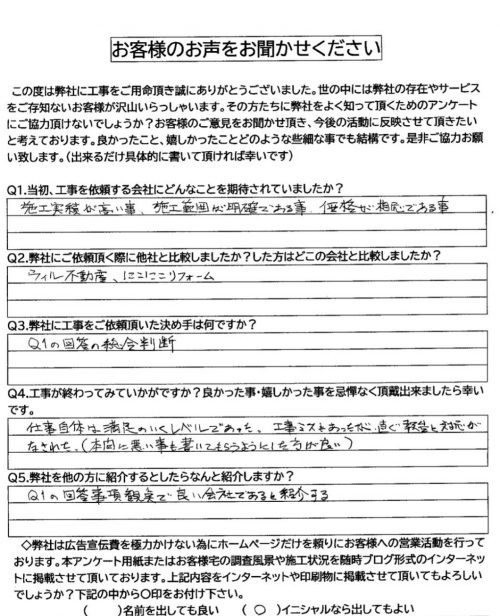 お客様のお声をお聞かせください
この度は弊社に工事をご用命頂き誠にありがとうございました。世の中には弊社の存在やサービス
をご存知ないお客様が沢山いらっしゃいます。その方たちに弊社をよく知って頂くためのアンケート
にご協力頂けないでしょうか？お客様のご意見をお聞かせ頂き、今後の活動に反映させて頂きたい
と考えております。良かったこと、嬉しかったことどのような些細な事でも結構です。是非ご協力お願
い致します。（出来るだけ具体的に書いて頂ければ幸いです）
Q1.当初、工事を依頼する会社にどんなことを期待されていましたか？
施工実績が高い事、施工範囲が明確である事、価格が相応である事
Q2.弊社にご依頼頂く際に他社と比較しましたか？した方はどこの会社と比較しましたか？
ウィル不動産、にこにこリフォーム
Q3.弊社に工事をご依頼頂いた決め手は何ですか？
Q1の回答の総合判断
Q4.工事が終わってみていかがですか？良かった事・嬉しかった事を忌憚なく頂戴出来ましたら幸い
です。
仕事自体は満足のいくレベルであった、工事ミスもあったが、直ぐ報告と対応が
なされた。（本向に悪い事も書いてもらうようにした方が良い）
Q5.弊社を他の方に紹介するとしたらなんと紹介しますか？
Q1の回答事項観点で良い会社であると紹介する
◇弊社は広告宣伝費を極力かけない為にホームページだけを頼りにお客様への営業活動を行って
おります。本アンケート用紙またはお客様宅の調査風景や施工状況を随時ブログ形式のインターネッ
トに掲載させて頂いております。上記内容をインターネットや印刷物に掲載させて頂いてもよろしい
でしょうか？下記の中から〇印をお付け下さい。
（　　）名前を出しても良い　（ 〇 ）イニシャルなら出してもよい